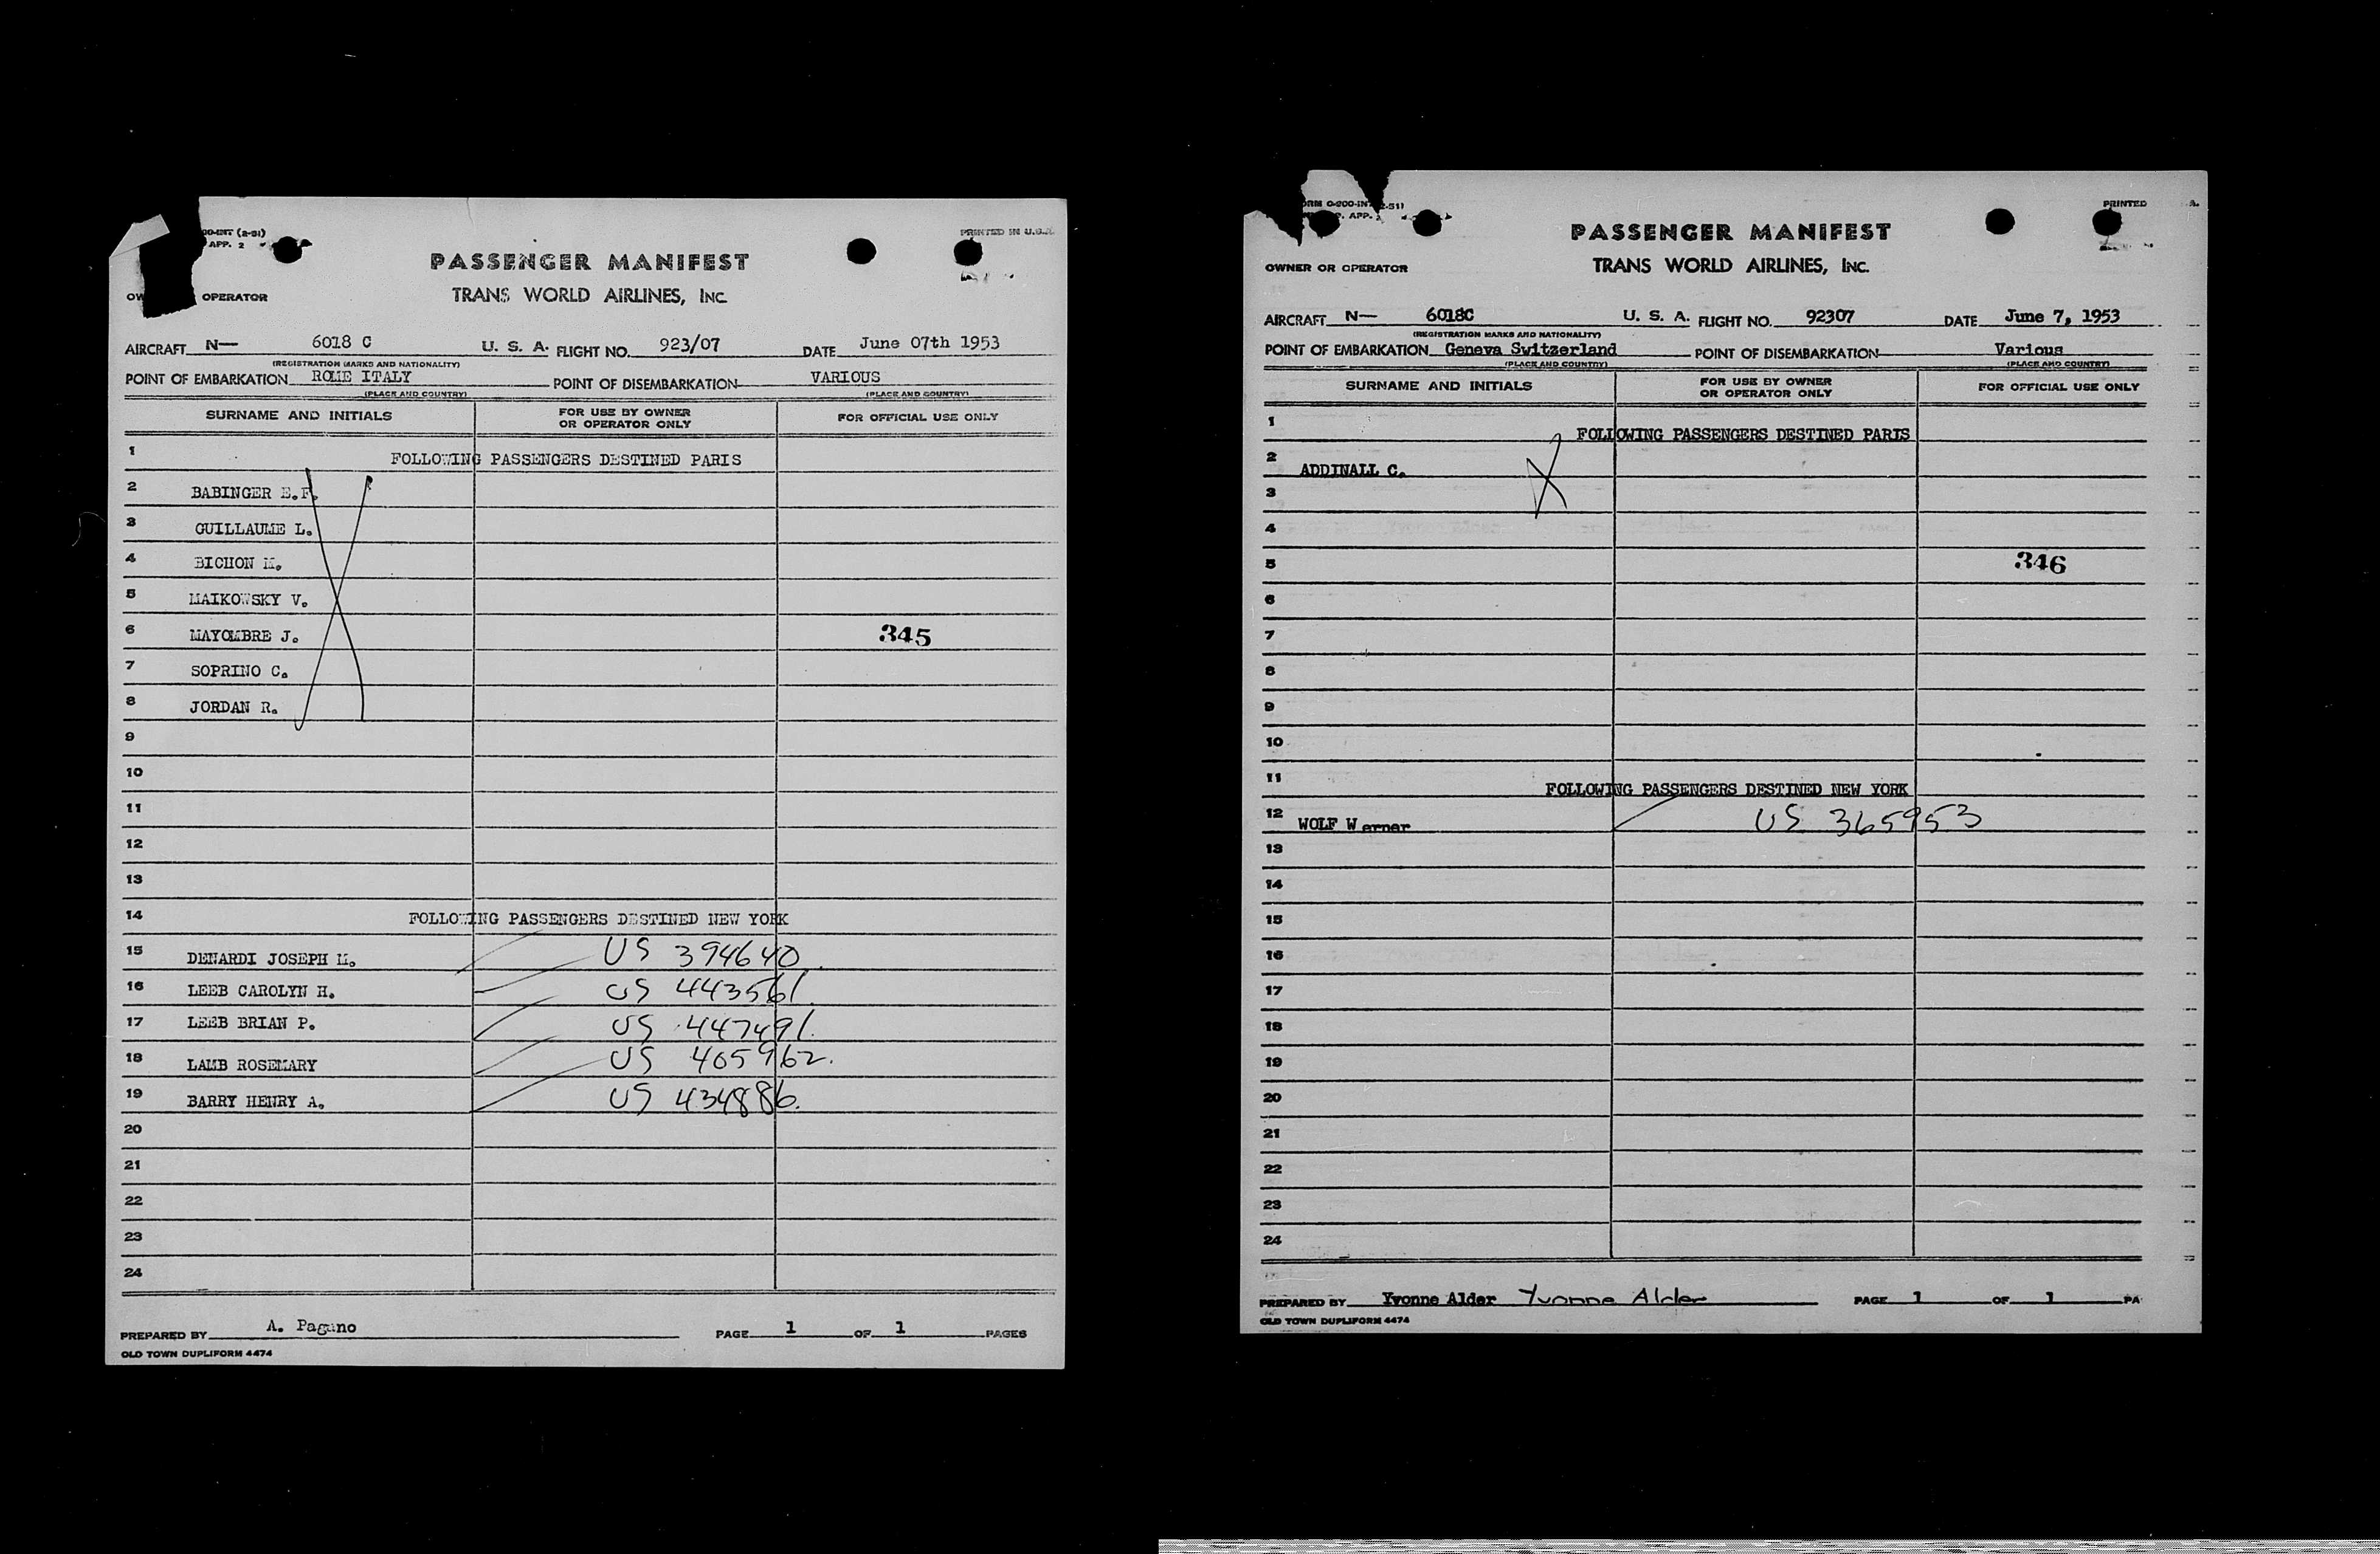 00-INT (2-51)
APP. 2
PRINTED IN U.S.A.
PASSENGER MANIFEST
TRANS WORLD AIRLINES, INC.
OW OPERATOR
AIRCRAFT N— 6018 C U. S. A. FLIGHT NO. 923/07 DATE June 07th 1953
(REGISTRATION MARKS AND NATIONALITY)
POINT OF EMBARKATION ROME ITALY POINT OF DISEMBARKATION VARIOUS
(PLACE AND COUNTRY) (PLACE AND COUNTRY)
SURNAME AND INITIALS FOR USE BY OWNER OR OPERATOR ONLY FOR OFFICIAL USE ONLY
1 FOLLOWING PASSENGERS DESTINED PARIS
2 BABINGER E.F.
3 GUILLAUME L.
4 BICHON M.
5 MAIKOWSKY V.
6 MAYOMBRE J. 345
7 SOPRINO C.
8 JORDAN R.
9
10
11
12
13
14 FOLLOWING PASSENGERS DESTINED NEW YORK
15 DENARDI JOSEPH M. US 394640
16 LEEB CAROLYN H. US 443561.
17 LEEB BRIAN P. US 447491.
18 LAMB ROSEMARY US 465962.
19 BARRY HENRY A. US 434886.
20
21
22
23
24
PREPARED BY A. Pagano PAGE 1 OF 1 PAGES
OLD TOWN DUPLIFORM 4474
ORM O-200-INT 2-51)
APP.
PRINTED A.
PASSENGER MANIFEST
TRANS WORLD AIRLINES, INC.
OWNER OR OPERATOR
AIRCRAFT N— 6018C U. S. A. FLIGHT NO. 92307 DATE June 7, 1953
(REGISTRATION MARKS AND NATIONALITY)
POINT OF EMBARKATION Geneva Switzerland POINT OF DISEMBARKATION Various
(PLACE AND COUNTRY) (PLACE AND COUNTRY)
SURNAME AND INITIALS FOR USE BY OWNER OR OPERATOR ONLY FOR OFFICIAL USE ONLY
1 FOLLOWING PASSENGERS DESTINED PARIS
2 ADDINALL C.
3
4
5 346
6
7
8
9
10
11 FOLLOWING PASSENGERS DESTINED NEW YORK
12 WOLF Werner US 365953
13
14
15
16
17
18
19
20
21
22
23
24
PREPARED BY Yvonne Alder Yvonne Alder PAGE 1 OF 1 PA
OLD TOWN DUPLIFORM 4474